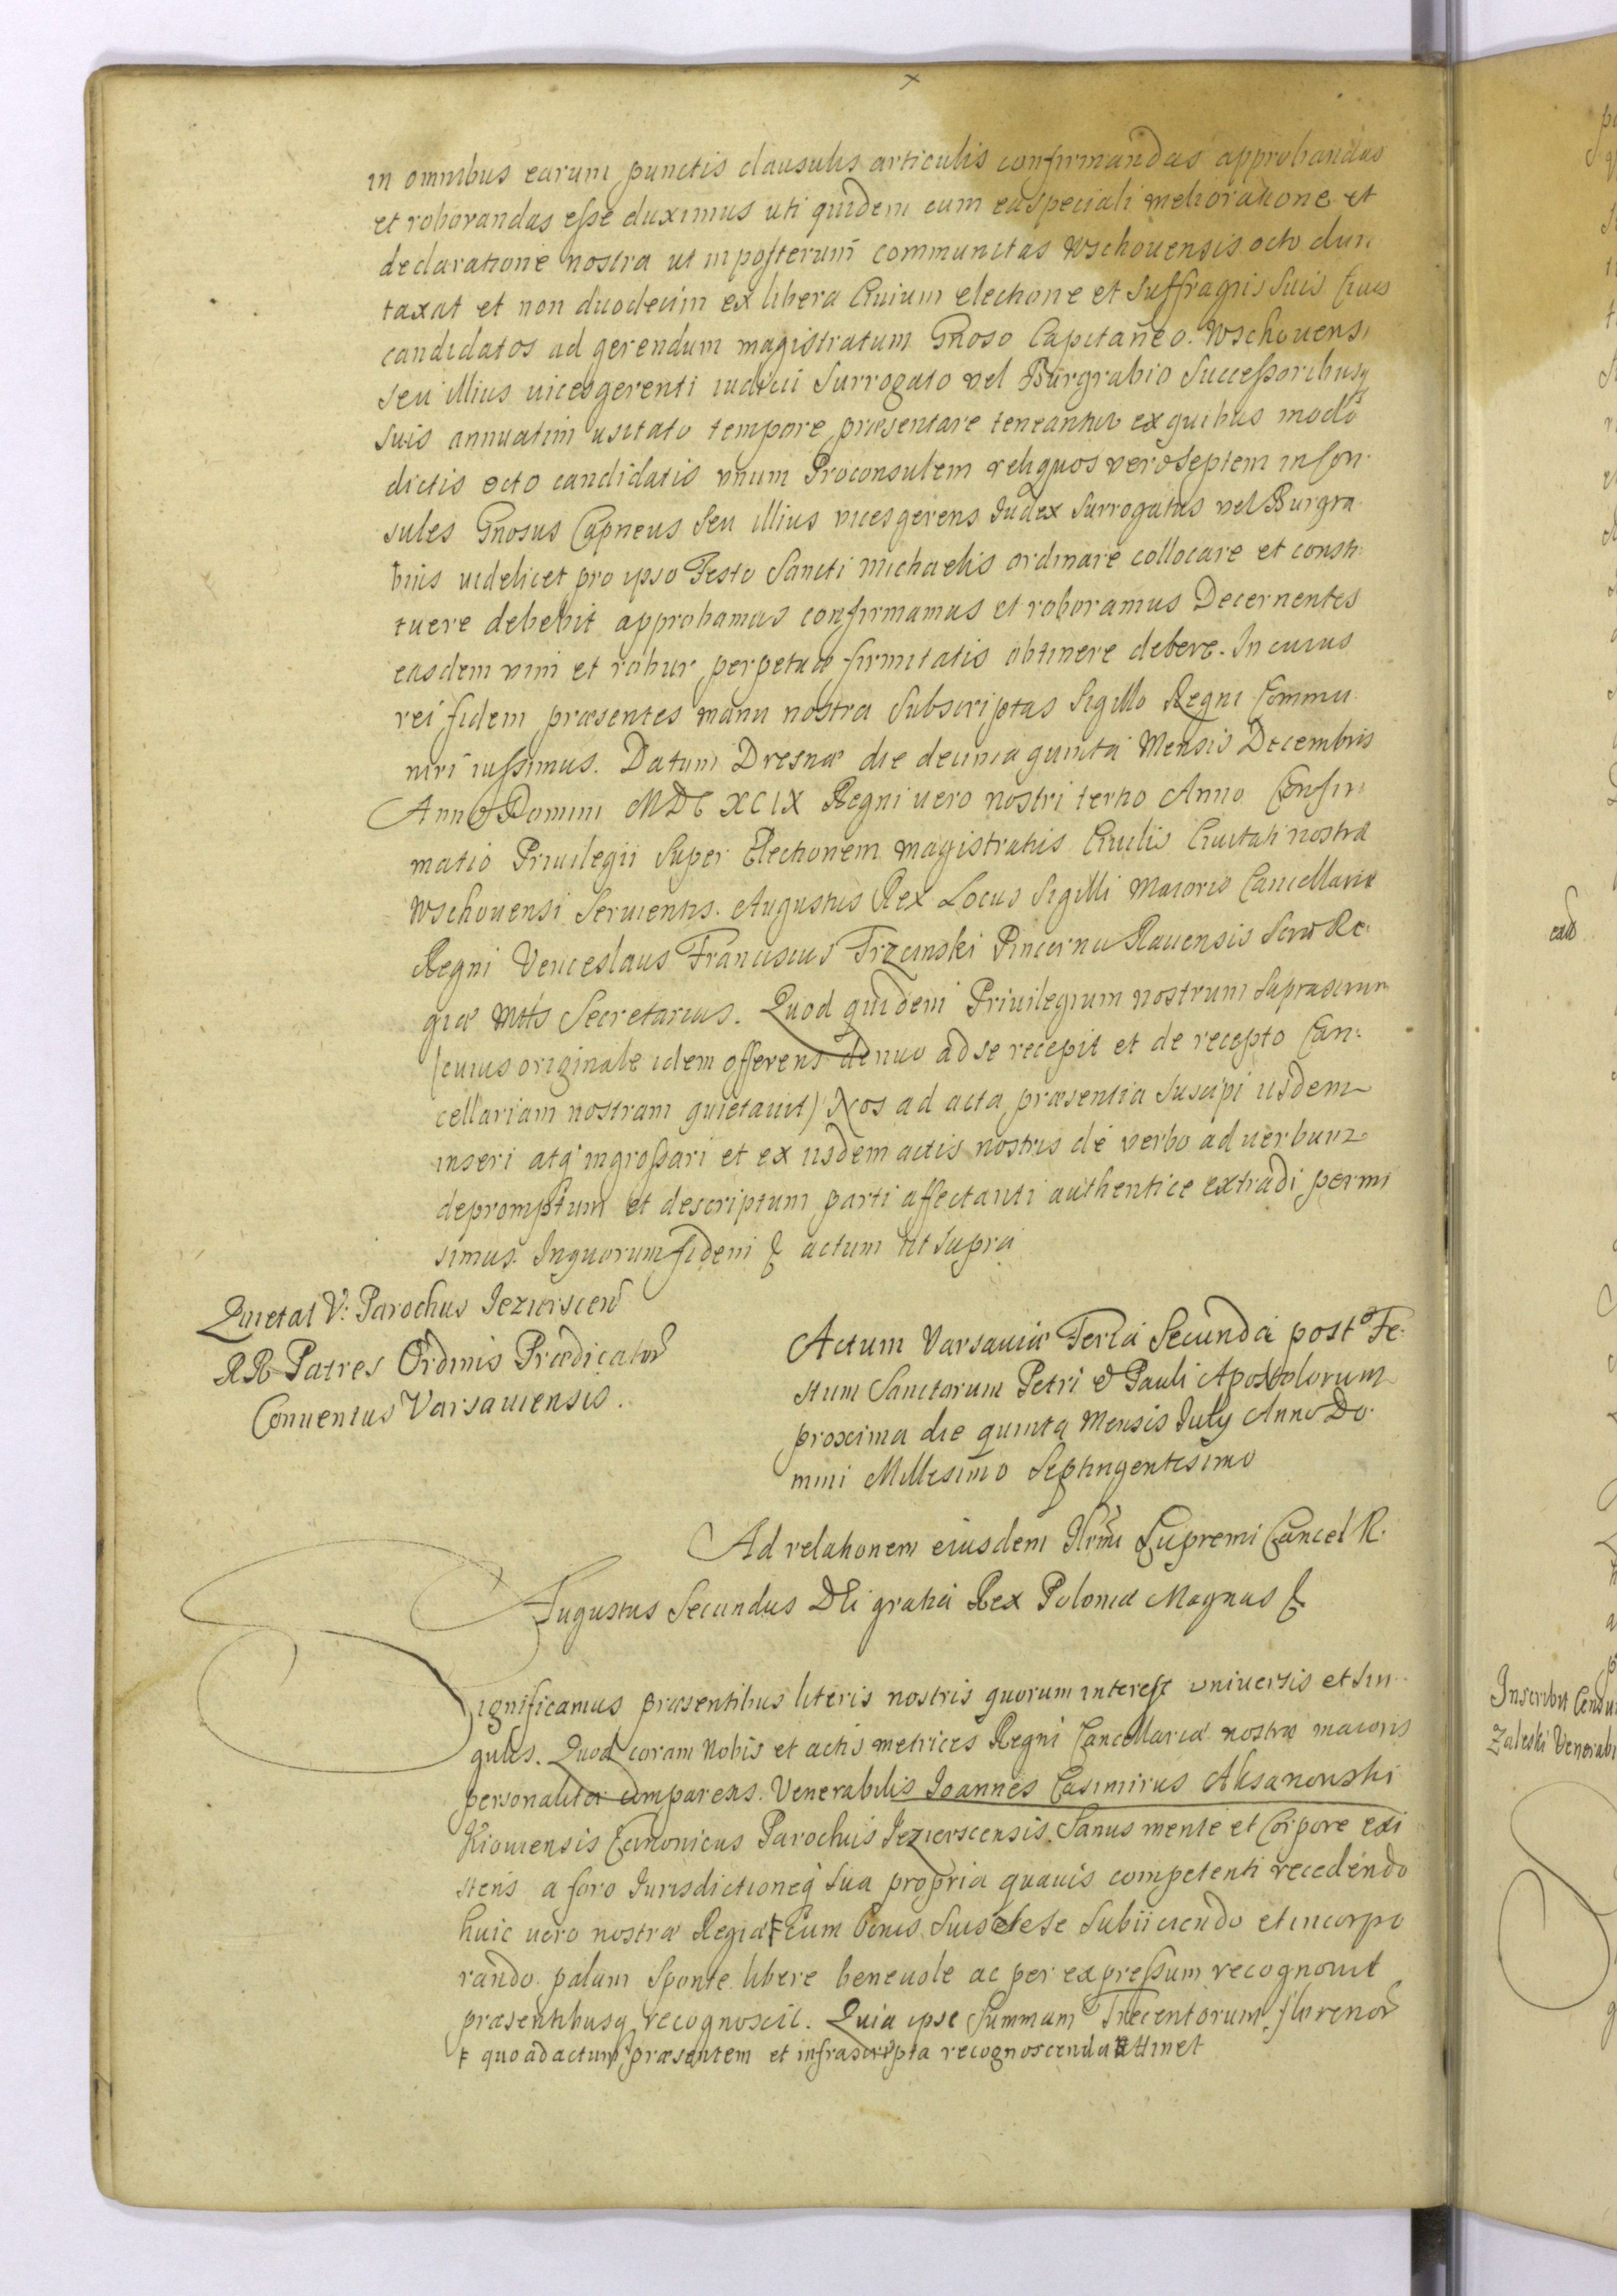 in omnibus earum punctis clausulis articulis confirmandas approbandas
et roborandas esse duximus uti quidem cum ea speciali melioratione et
declaratione nostra ut in posterum communitas Wschouensis octo dun
taxat et non duodecim ex libera Ciuium electione et suffragiis suis Ciues
candidatos ad gerendum magistratum Gnoso Capitaneo Wschouensi
seu illius uicesgerenti iudici Surrogato vel Burgrabio Successoribusq
suis annuatim usitato tempore præsentare teneantur ex quibus modo
dictis octo candidatis vnum Proconsulem reliquos vero septem in Con
sules Gnosus Capneus seu illius vicesgerens Iudex Surrogatus vel Burgra
bius uidelicet pro ipso Festo Sancti Michaelis ordinare collocare et consti
tuere debebit approbamus confirmamus et roboramus Decernentes
easdem vim et robur perpetuæ firmitatis obtinere debere. In cuius
rei fidem præsentes manu nostra subscriptas Sigillo Regni Commu
niri iussimus. Datum Dresnæ die decima quinta Mensis Decembris
Anno Domini MDC XCIX Regni uero nostri tertio Anno Confir
matio Priuilegii super Electionem magistratus Ciuilis Ciuitati nostræ
Wschouensi Seruientis. Augustus Rex Locus Sigilli Maioris Cancellariæ
Regni Venceslaus Franciscus Trzcinski Pincerna Rauensis Sacræ Re
giæ Mttis Secretarius. Quod quidem Priuilegium nostrum suprascriptum
(cuius originale idem offerens denuo ad se recepit et de recepto Can:
cellariam nostram quietauit) Nos ad acta præsentia suscipi iisdem
inseri atq ingrossari et ex iisdem actis nostris de verbo ad uerbum
depromptum et descriptum parti affectanti authentice extradi permi
simus. In quorum fidem & actum ut supra
Quietat V: Parochus Iezierscen
RR Patres Ordinis Prædicator
Conuentus Varsauiensis.
Actum Varsauiæ Feria Secunda post Fe:
stum Sanctorum Petri & Pauli Apostolorum
proxima die quinta Mensis July Anno Do
mini Millesimo Septingentesimo
Ad relationem eiusdem Illrmi Supremi Cancel R.
Augustus Secundus Dei gratia Rex Poloniæ Magnus &
Significamus præsentibus literis nostris quorum interest vniuersis et sin
gulis. Quod coram Nobis et actis metrices Regni Cancellariæ nostræ maioris
personaliter comparens Venerabilis Ioannes Casimirus Aksanowski
Kiouiensis Canonicus Parochus Iezierscensis. Sanus mente et Corpore exi
stens a foro Iurisdictioneq sua propria quauis competenti recedendo
huic uero nostræ Regiæ Ŧ cum bonis suis et se subiiciendo et incorpo
rando palam sponte libere beneuole ac per expressum recognouit
præsentibusq recognoscit. Quia ipse Summam Trecentorum florenor
Ŧ quo ad actum præsentem et infrascripta recognoscenda attinet
Inscribit
Zaleski Venerabi